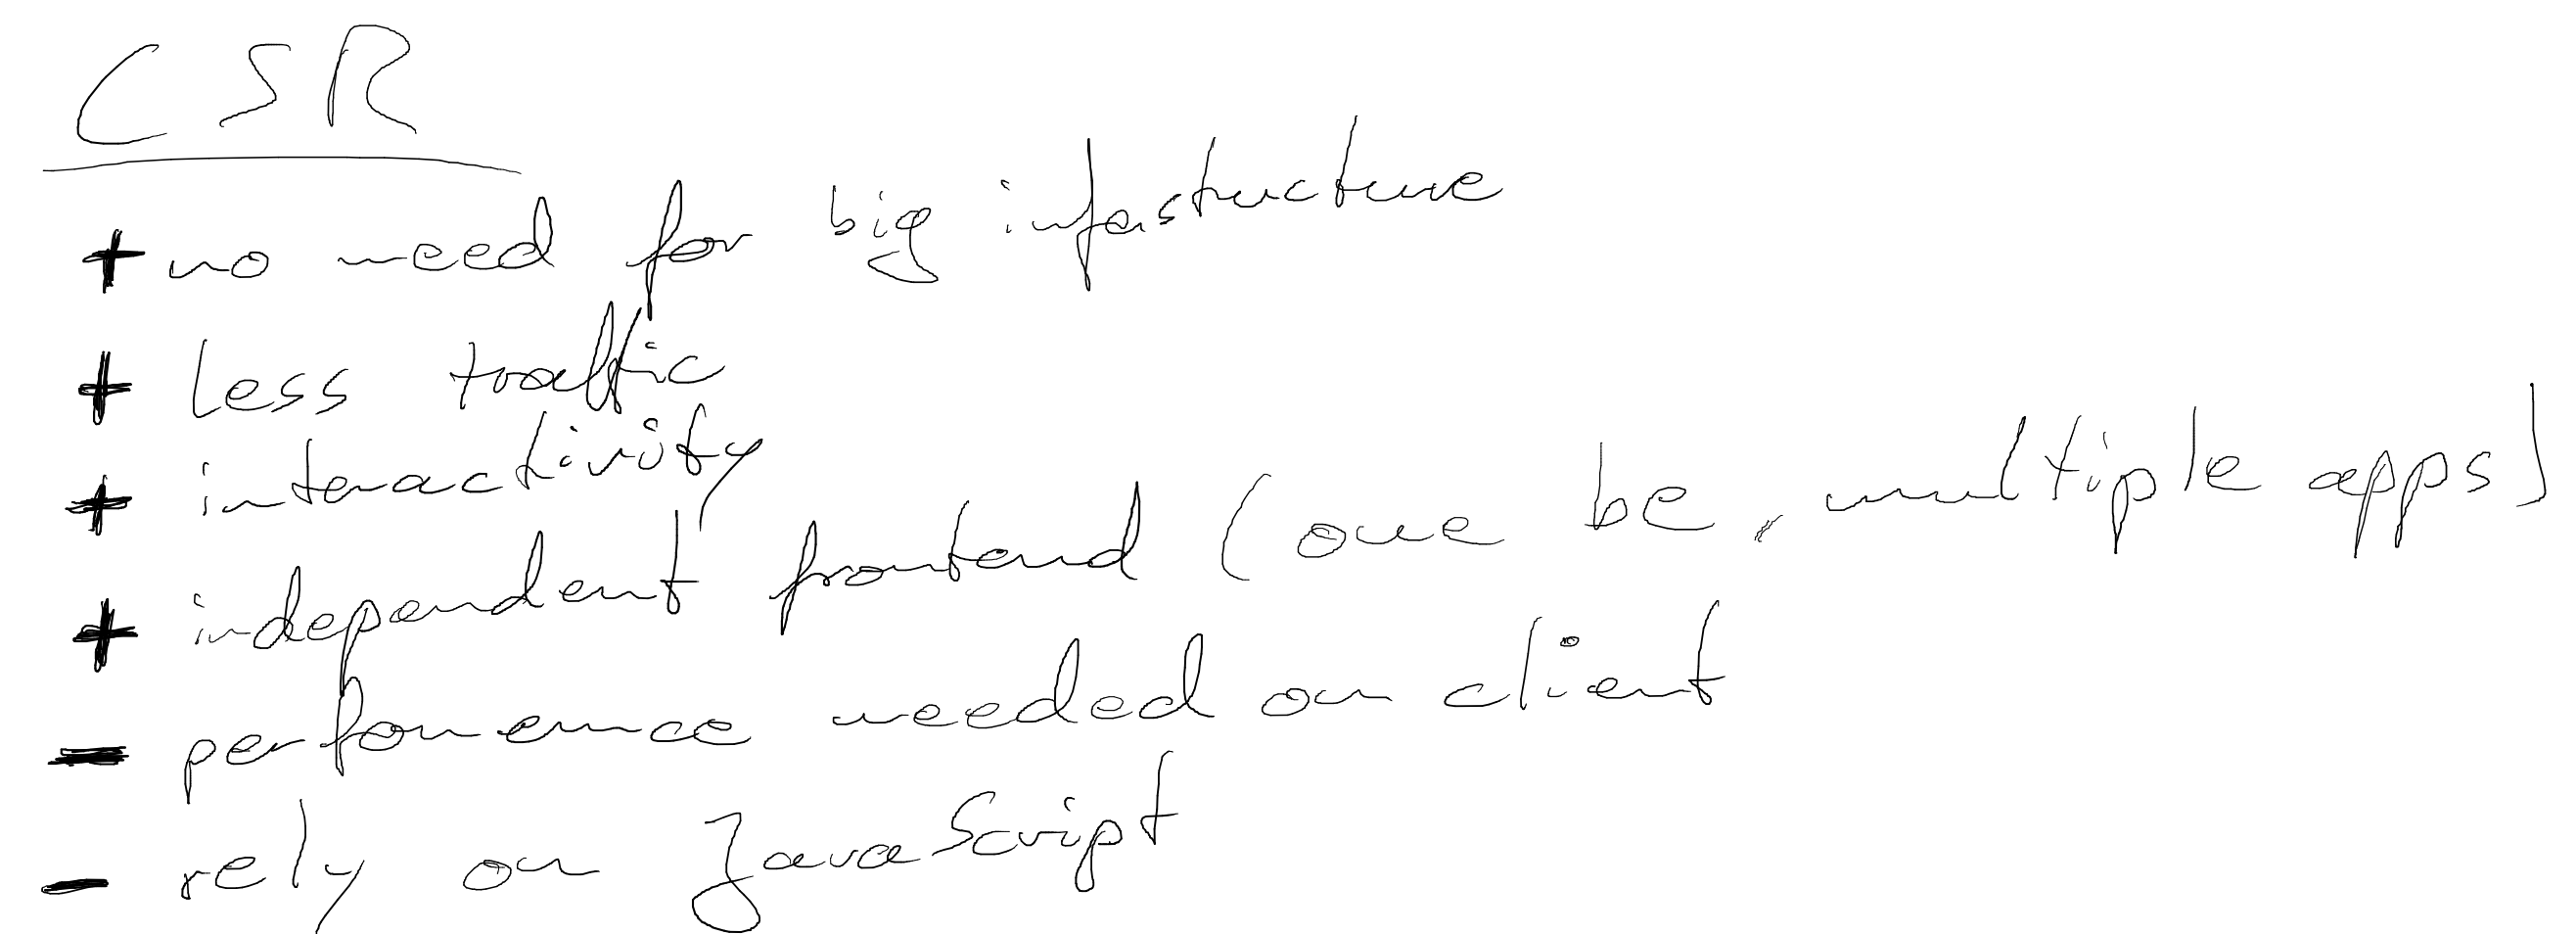 CSR
+ no need for big infastructure
+ less traffic
+ interactivity
+ independent frontend (one be, multiple apps)
- performance needed on client
- rely on JavaScript